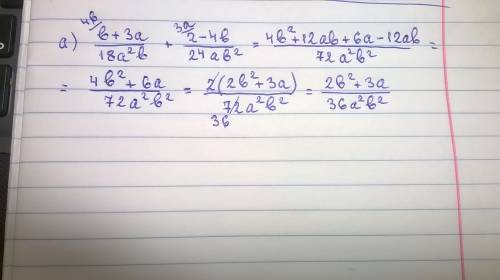 а) (4в/ в + 3а)/(18а²в) + (3а/ 2 - 4в)/(24ав²) = (4в² + 12ав + 6а - 12ав)/(72а²в²) =
= (4в² + 6а)/(72а²в²) = (2(2в² + 3а))/(72а²в²) = (2в² + 3а)/(36а²в²)
36